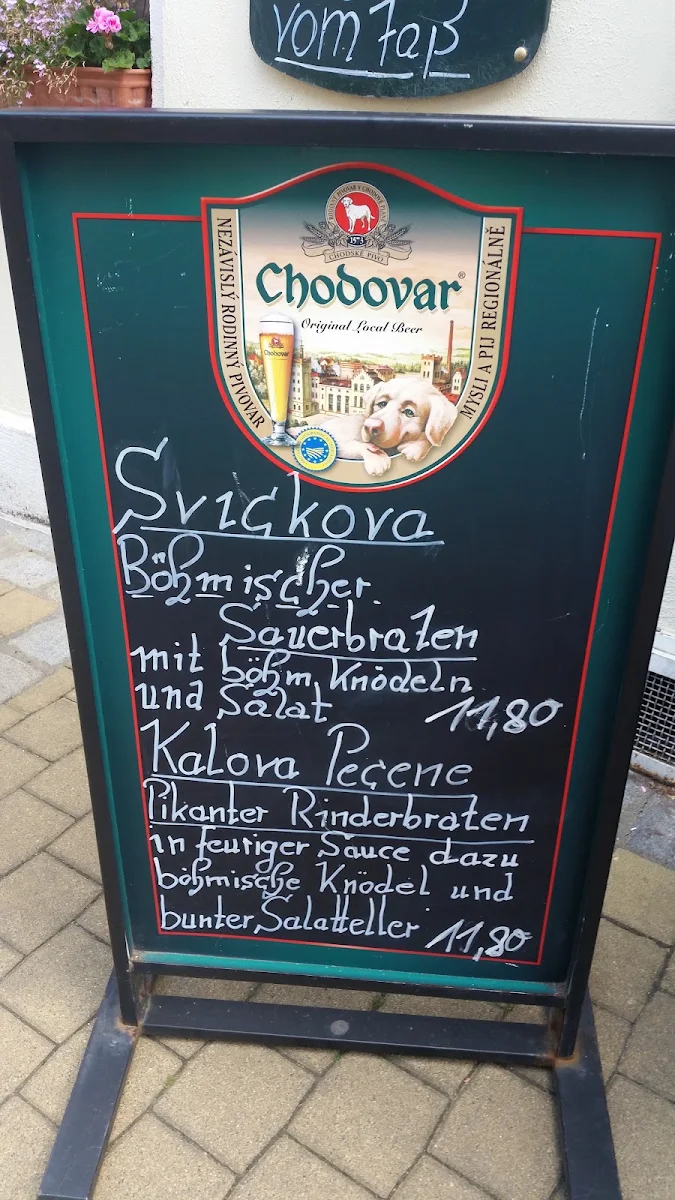 vom Faß
RODINNÝ PIVOVAR V CHODOVÉ PLANÉ
1573
CHODSKÉ PIVO
NEZÁVISLÝ RODINNÝ PIVOVAR
MYSLI A PIJ REGIONÁLNĚ
Chodovar®
Original Local Beer
Chodovar
Svıçkova
Böhmischer
Sauerbraten
mit böhm. Knödeln
und Salat 11,80
Kalova Peçene
Pikanter Rinderbraten
in feuriger Sauce dazu
böhmische Knödel und
bunter Salatteller 11,80